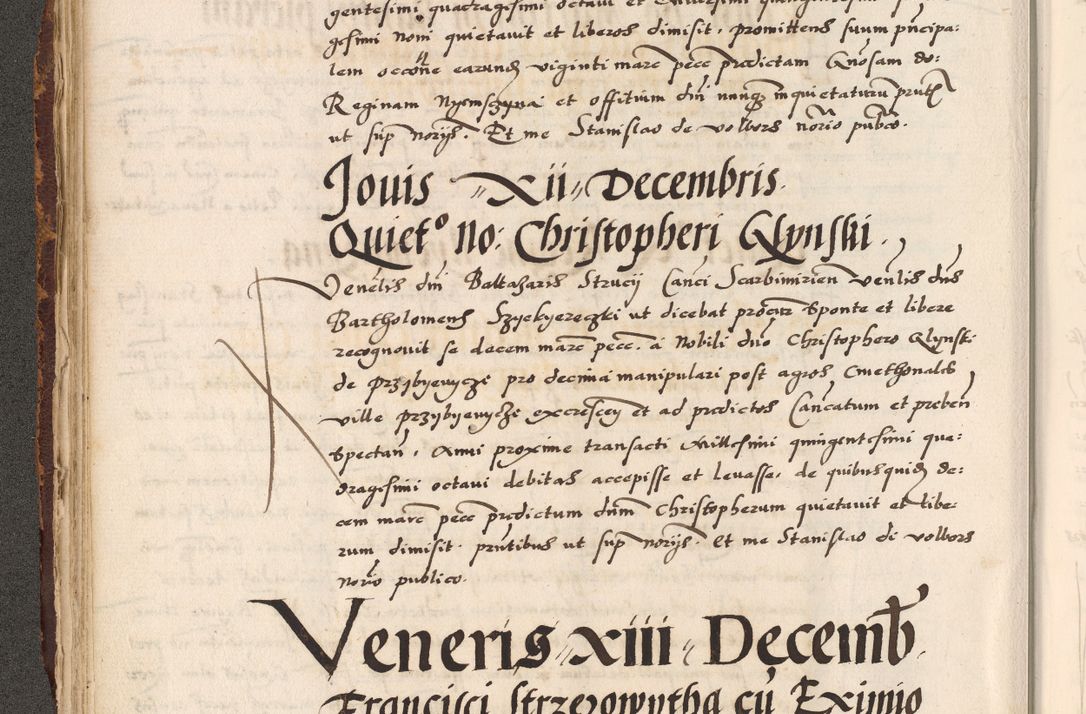 gentesimi quadragesimi octavi et
gesimi noni quietavit et liberos dimisit. promittens suum pncipa:
lem occoñe earund viginti marc pecc predictam Gnosam do:
Reginam Nyemszyna et offitium dni nunq inquietaturu pntib
ut sup norijs. Et me Stanislao de volbors norio pubco.
Jouis XII Decembris.
Quieto No: Christopheri Glynski.
Venelis dni Baltazaris Strucij Canci Scarbimirien venlis dns
Bartholomeus Szyekyereczki ut dicebat procur sponte et libere
recognouit se decem marc pecc. a Nobili dno Christophero Glynski
de przybyenyczi pro decima manipulari post agros Cmethonales
ville przybyenyczi excrescen et ad predictos Cancatum et preben
spectan. Anni proxime transacti Millesimi quingentesimi qua:
dragesimi octaui debitas accepisse et leuasse. de quibusquid de:
cem marc pecc predictum dnm Christopherum quietauit et libe
rum dimisit. pntibus ut sup norijs. Et me Stanislao di volbors
norio publico.
Veneris XIII Decemb.
Francisci Strzezowytha cu Eximio